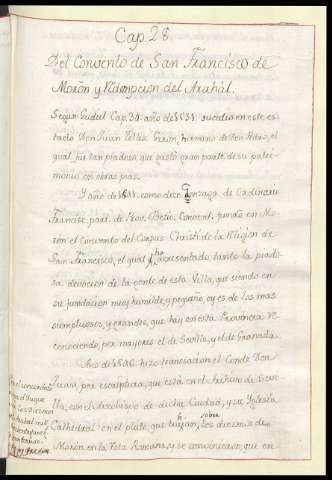 Cap. 28
Del Convento de San Francisco de
Morón y Redempcion del Arahál.
Según Gudiel Cap. 34 año de 1531 sucedio en este es
tado Don Juan Tellez Giron, hermano de Don Pedro, el
qual fue tan piadoso, que gastó gran parte de su patri-
monio en obras pias.
Y año de 1541. como dice Gonzaga de
Francisc. part. de Prov. Betic. Convent. fundó en Mo
rón el Convento del Corpus Christi de la Religion de
San Francisco, el qual tanto la piado
sa devocion de la gente de esta Villa, que siendo en
su fundacion muy humilde y pequeño, oy es de los mas
sumptuosos, y grandes, que hay en esta Provincia re
conociendo, por mayores el de Sevilla, y el de Granada.
Año de 1546 hizo transacion el Conde Don
Juan, por escriptura, que está en el Archivo de Sevi
lla, con el Arzobispo de dicha Ciudad, y su Yglesia
Cathedral en el pleito, que trahian, sobre los diezmos de
Morón en la Rota Romana, y se convinieron, que en